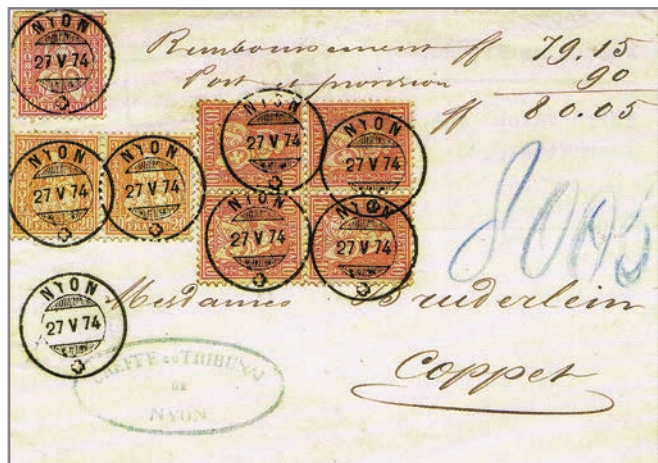 Remboursement ff 79.15
Port et provision 90
ff 80.05
8005
NYON
27 V 74
NYON
27 V 74
NYON
27 V 74
NYON
27 V 74
NYON
27 V 74
NYON
27 V 74
NYON
27 V 74
NYON
27 V 74
FRANCO
FRANCO
Mesdames Bruderlein
Coppet
GREFFE DU TRIBUNAL
DE
NYON